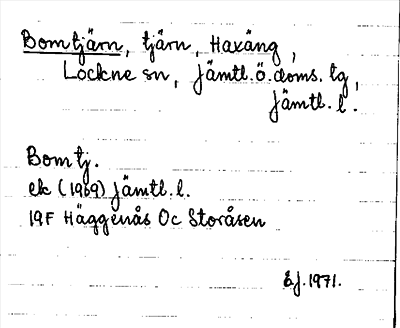 Bomtjärn, tjärn, Haxäng,
Lockne sn, Jämtl. ö. doms. tg,
Jämtl. l.
Bomtj.
ek (1969) Jämtl. l.
19F Häggenås Oc Storåsen
1971.